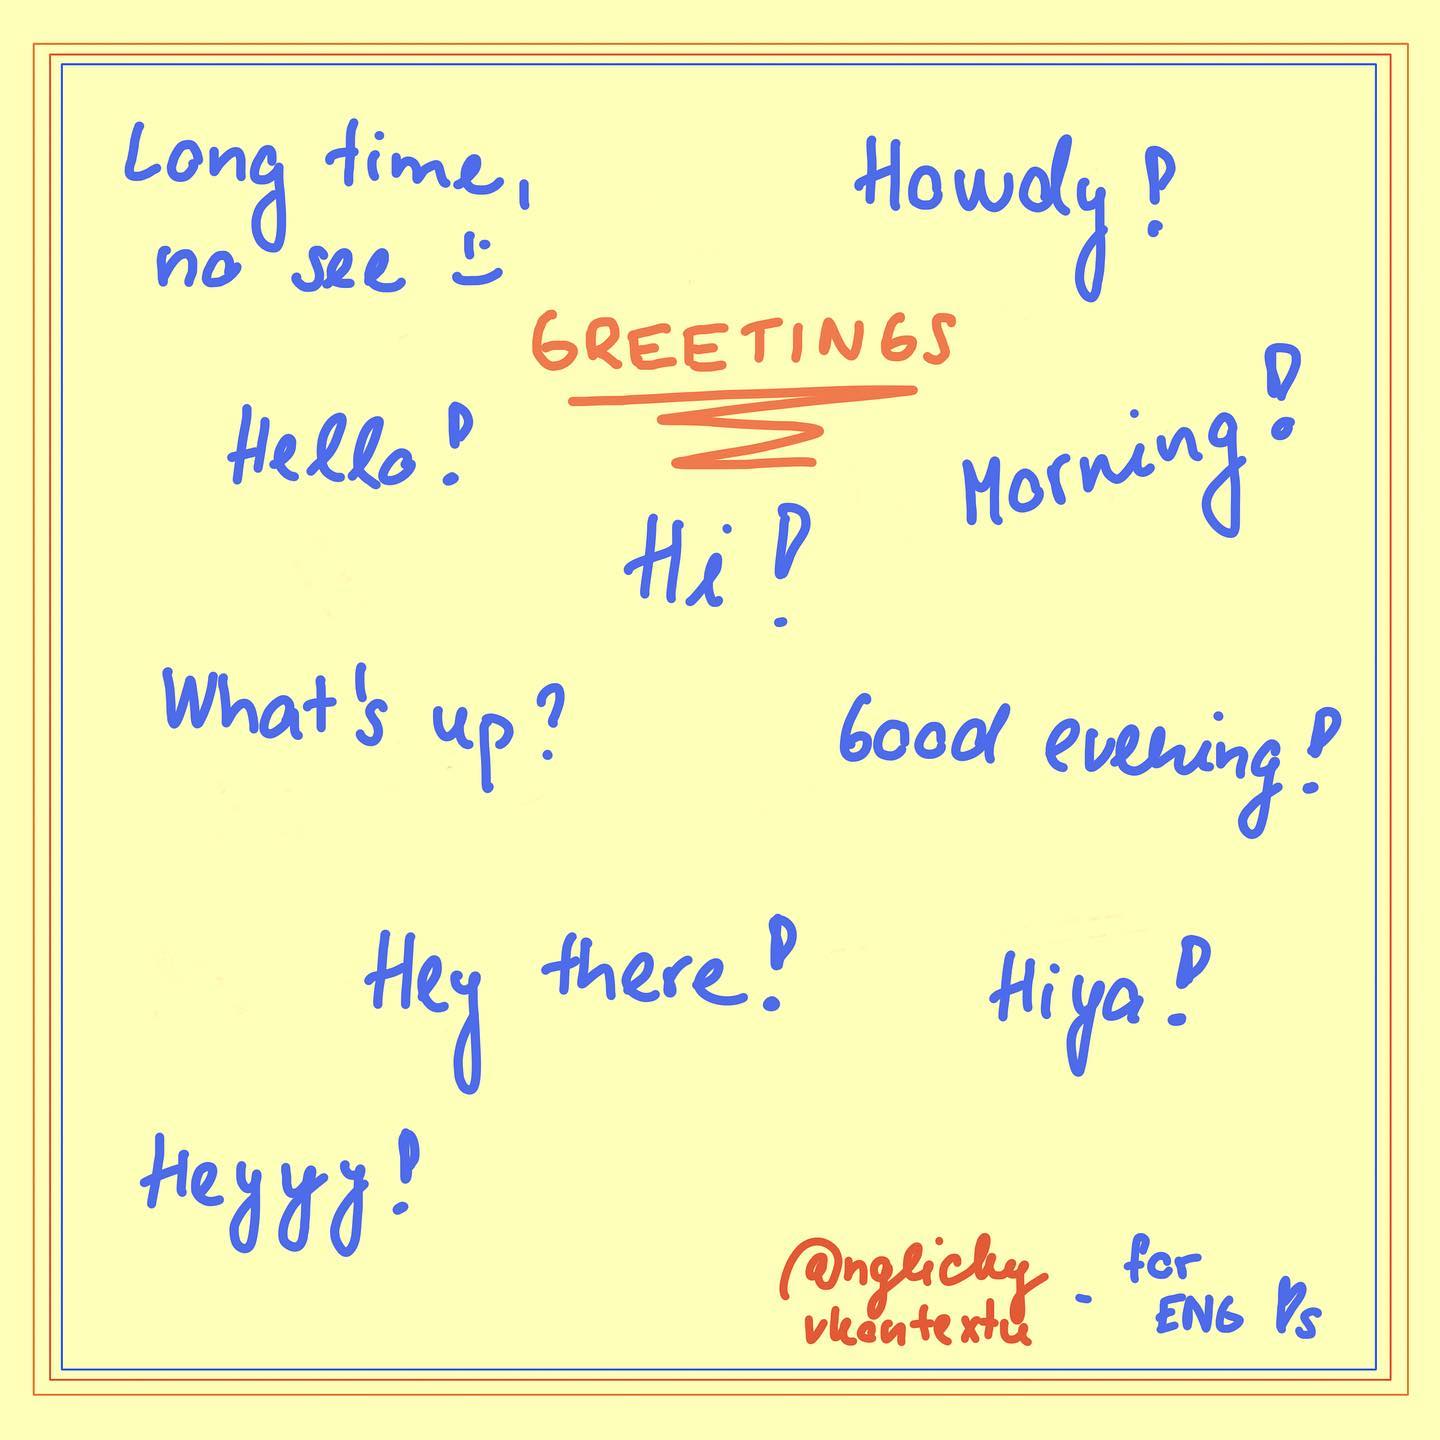 Long time,
no see :)
Howdy!
GREETINGS
Hello!
Morning!
Hi!
What's up?
Good evening!
Hey there!
Hiya!
Heyyy!
@nglicky
vkontextu
- for
ENG